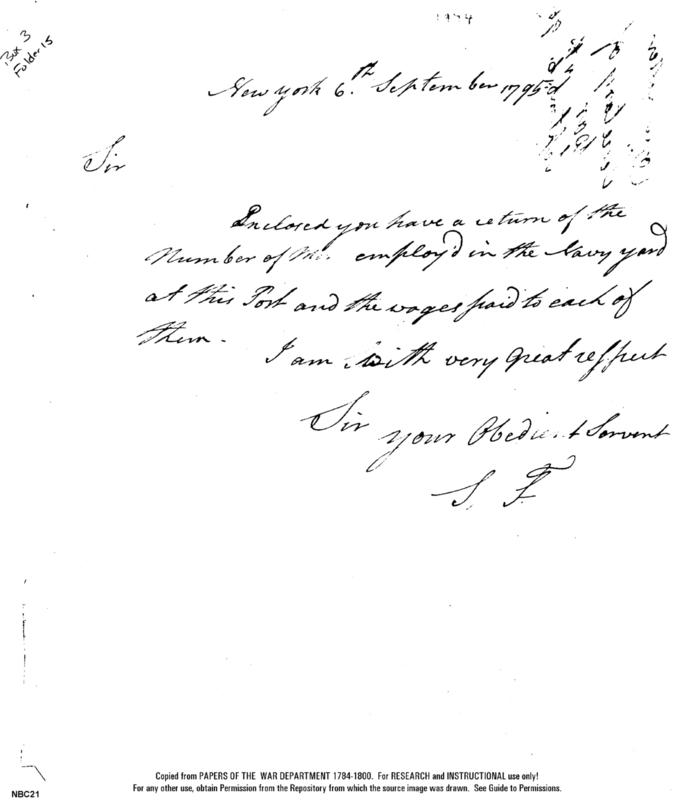 Box 3
Folder 15
New York 6.th September 1795
Sir
Enclosed you have a return of the
Number of employ'd in the Navy yard
at this Port and the wages paid to each of
them.
I am with very great respect
Sir
your Obedient Servent
S. F
Copied from PAPERS OF THE WAR DEPARTMENT 1784-1800. For RESEARCH and INSTRUCTIONAL use only!
For any other use, obtain Permission from the Repository from which the source image was drawn. See Guide to Permissions.
NBC21